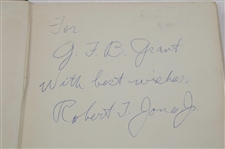 For
G. F. B. Grant
With best wishes.
Robert T. Jones Jr